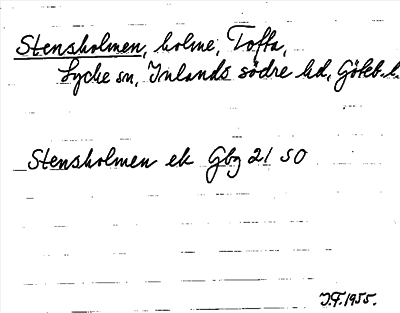 Stensholmen, holme, Tofta,
Lycke sn, Inlands södre hd, Göteb. l.
Stensholmen ek Gbg 21 SO
J.F. 1955.